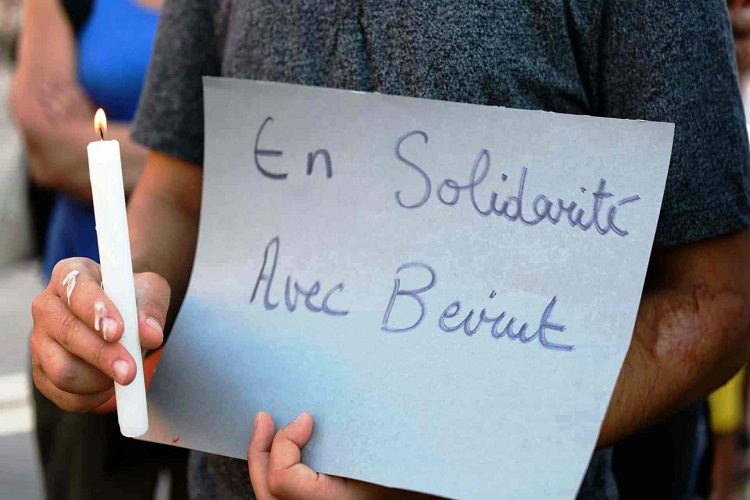 En Solidarité
Avec Beirut